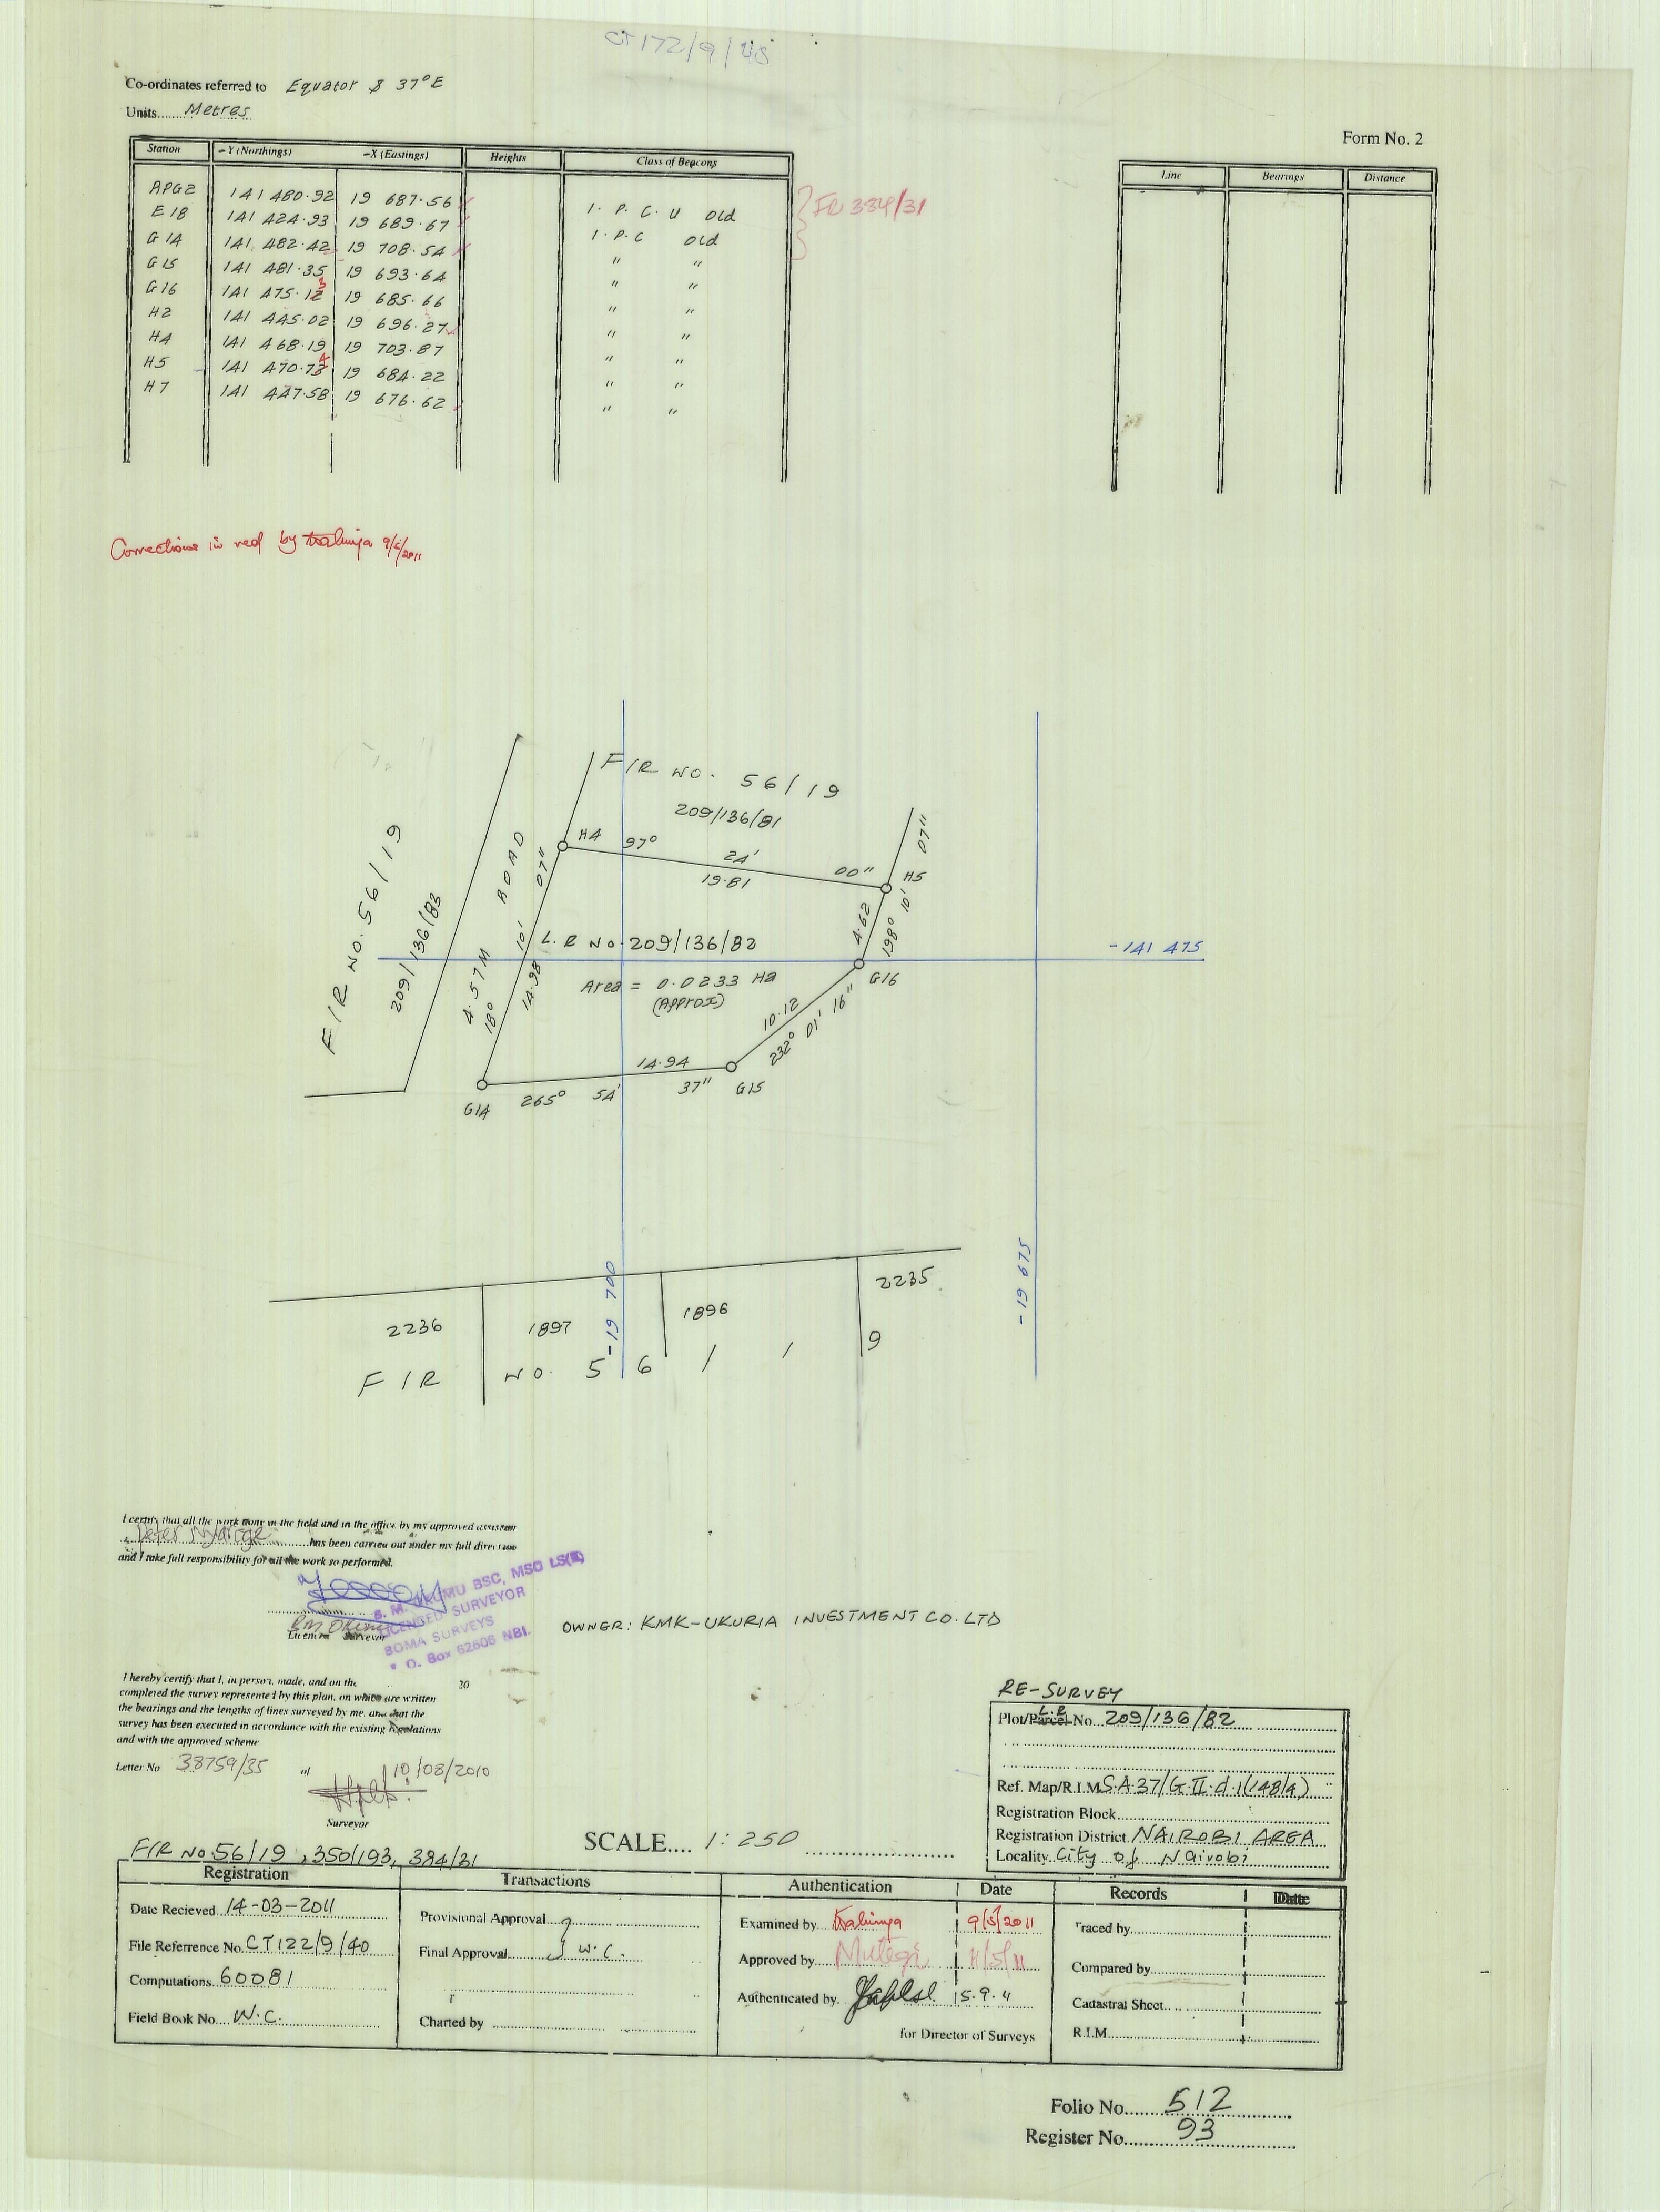 CT 172/9/45
Co-ordinates referred to Equator & 37° E
Units Metres
Form No. 2
Station -Y (Northings) -X (Eastings) Heights Class of Beacons
APG2 141 480.92 19 687.56 1. P. C. U old
E 18 141 424.93 19 689.67 1. P. C old
G 14 141 482.42 19 708.54 " "
G 15 141 481.35 19 693.64 " "
G 16 141 475.12 3 19 685.66 " "
H2 141 445.02 19 696.27 " "
H4 141 468.19 19 703.87 " "
H5 141 470.73 4 19 684.22 " "
H7 141 447.58 19 676.62 " "
Line Bearings Distance
Corrections in red by Kahinga 9/5/2011
F/R NO. 56/19
209/136/81
F/R NO. 56/19
209/136/83
ROAD
4.57M
H4 97° 24' 00" H5
19.81
18° 10' 07"
14.98
07"
198° 10'
4.62
L.R NO. 209/136/82
-141 475
Area = 0.0233 Ha
(Approx)
G16
10.12
232° 01' 16"
14.94
G14 265° 54' 37" G15
-19 700
-19 675
2236 1897 1896 2235
F/R NO. 56/19
I certify that all the work done in the field and in the office by my approved assistant
Peter Nyairge has been carried out under my full direction
and I take full responsibility for all the work so performed.
BSC, MSC LS(K)
LICENCED SURVEYOR
BOMA SURVEYS
P. O. Box 62606 NBI.
Licenced Surveyor
OWNER: KMK-UKURIA INVESTMENT CO. LTD
I hereby certify that I, in person, made, and on the 20
completed the survey represented by this plan, on which are written
the bearings and the lengths of lines surveyed by me. and that the
survey has been executed in accordance with the existing regulations
and with the approved scheme
Letter No 38759/35 of 10/08/2010
Surveyor
RE-SURVEY
L.R
Plot/Parcel No. 209/136/82
Ref. Map/R.I.M. S.A.37/G.II.d.1(148/4)
Registration Block
Registration District NAIROBI AREA
Locality City of Nairobi
SCALE 1:250
F/R NO. 56/19, 350/193, 384/31
Registration Transactions Authentication Date Records Date
Date Recieved 14-03-2011
File Referrence No. CT122/9/40
Computations 60081
Field Book No. W.C.
Provisional Approval
Final Approval W.C.
Charted by
Examined by Kahinga 9/5/2011
Approved by Mutegi 11/5/11
Authenticated by 15.9.11
for Director of Surveys
Traced by
Compared by
Cadastral Sheet
R.I.M.
Folio No. 512
Register No. 93